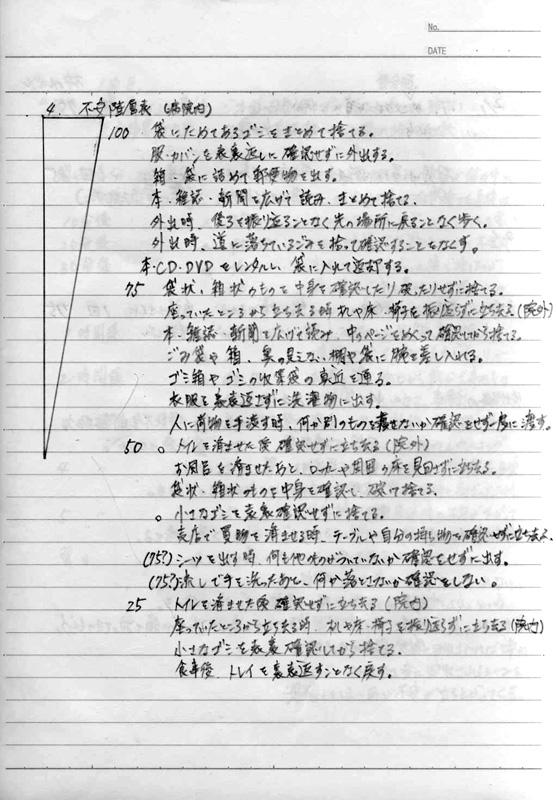 No.
DATE
4. 不安階層表 (病院内)
100 袋にためてあるゴミをまとめて捨てる。
服・カバンを裏返しに確認せずに外出する。
箱・袋に詰めて郵便物を出す。
本・雑誌・新聞を広げて読み、まとめて捨てる。
外出時、後ろを振り返ることなく先の場所に戻ることなく歩く。
外出時、道に落ちているごみを拾って確認することをなくす。
本・CD・DVDをレンタルし、袋に入れて返却する。
75 袋状・箱状のものを中身を確認したり破ったりせずに捨てる。
座っていたところから立ち去る時、机や床・椅子を振返らずに立ち去る(院外)
本・雑誌・新聞を広げて読み、中のページをめくって確認してから捨てる。
ごみ袋や箱、奥の見えない棚や袋に腕を差し入れる。
ゴミ箱やゴミの収集袋の真近を通る。
衣服を裏返さずに洗濯物に出す。
人に荷物を手渡す時、何か別のものを渡さないか確認をせず渡す。
50 。トイレを済ませた後 確認せずに立ち去る(院外)
お風呂を済ませたあと、ロッカーや周囲の床を見回さずに立ち去る。
袋状・箱状のものを中身を確認し、破って捨てる。
。小さなゴミを裏表確認せずに捨てる。
売店で買物を済ませる時、テーブルや自分の持し物を確認せずに立ち去る。
(75?) シーツを出す時、何も他のものがついていないか確認をせずに出す。
(75?) 流しで手を洗ったあと、何か落とさないか確認をしない。
25 トイレを済ませた後 確認せずに立ち去る(院内)
座っていたところから立ち去る時、机や床・椅子を振り返らずに立ち去る(院内)
小さなゴミを裏表確認してから捨てる。
食事後、トレイを裏返すことなく戻す。